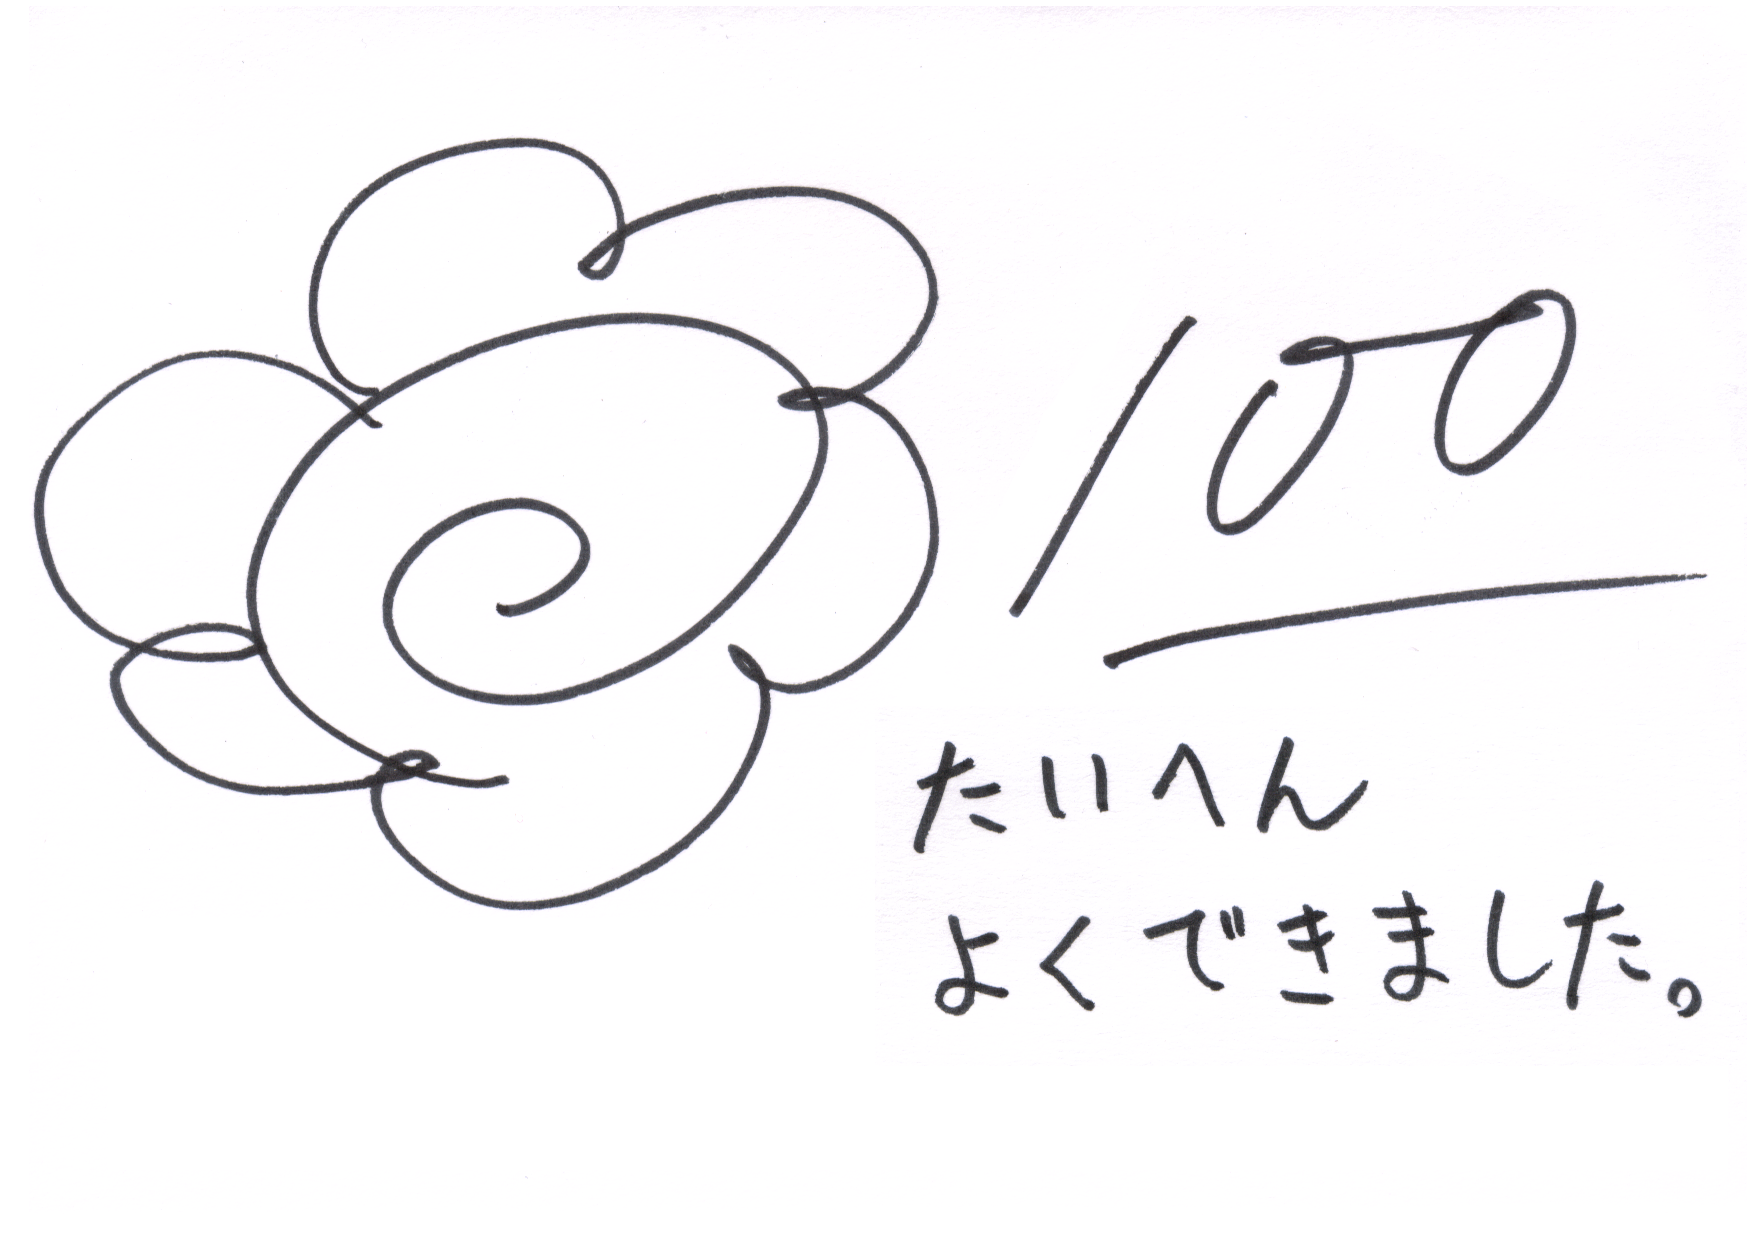 100
たいへん
よくできました。